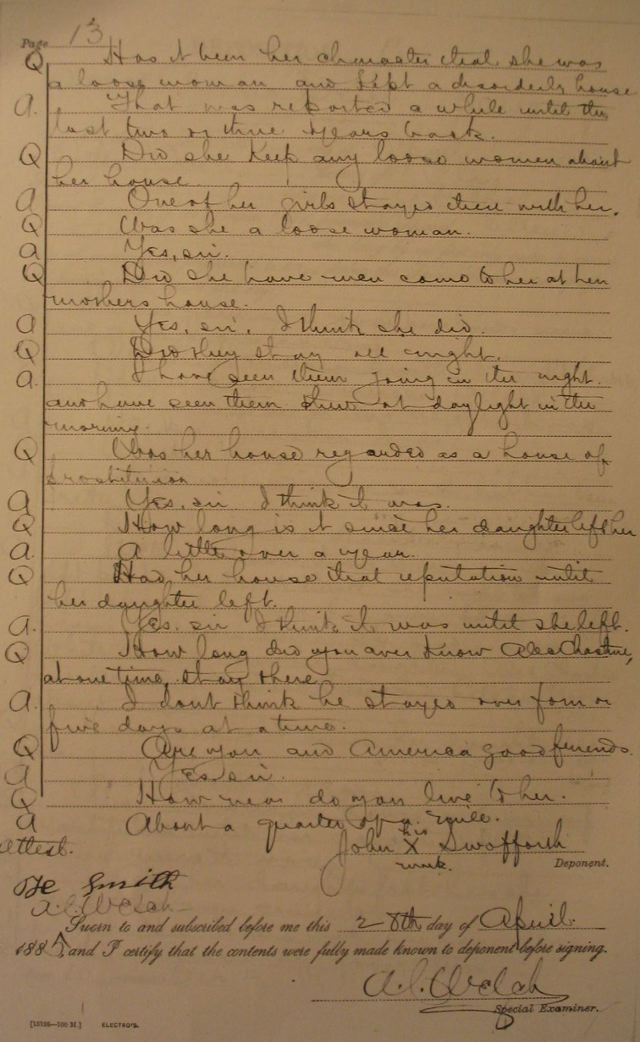 Page 13
Q Has it been her character that she was
a loose woman and kept a disorderly house
A. That was reported a while until the
last two or three years back.
Q Did she keep any loose women about
her house
A One of her girls stayed there with her.
Q Was she a loose woman.
A Yes, sir.
Q Did she have men come to her at her
mothers house.
A Yes, sir, I think she did.
Q Did they stay all night.
A. I have seen them going in the night.
and have seen them there at daylight in the
morning.
Q Was her house regarded as a house of
prostitution
A Yes, sir I think it was.
Q How long is it since her daughter left her
A. A little over a year.
Q Had her house that reputation until
her daughter left.
A. Yes. sir I think it was until she left.
Q How long did you ever know Alex Chastine,
at one time, stay there
A. I dont think he stayed over four or
five days at a time.
Q Are you and America good friends.
A Yes, sir.
Q How near do you live to her.
A About a quarter of a mile.
Attest.
his
John X Swofford
mark.
Deponent.
Smith
A.C. Welch
Sworn to and subscribed before me this 28th day of April.
188 , and I certify that the contents were fully made known to deponent before signing.
A. C. Welch
Special Examiner.
ELECTRO'S.